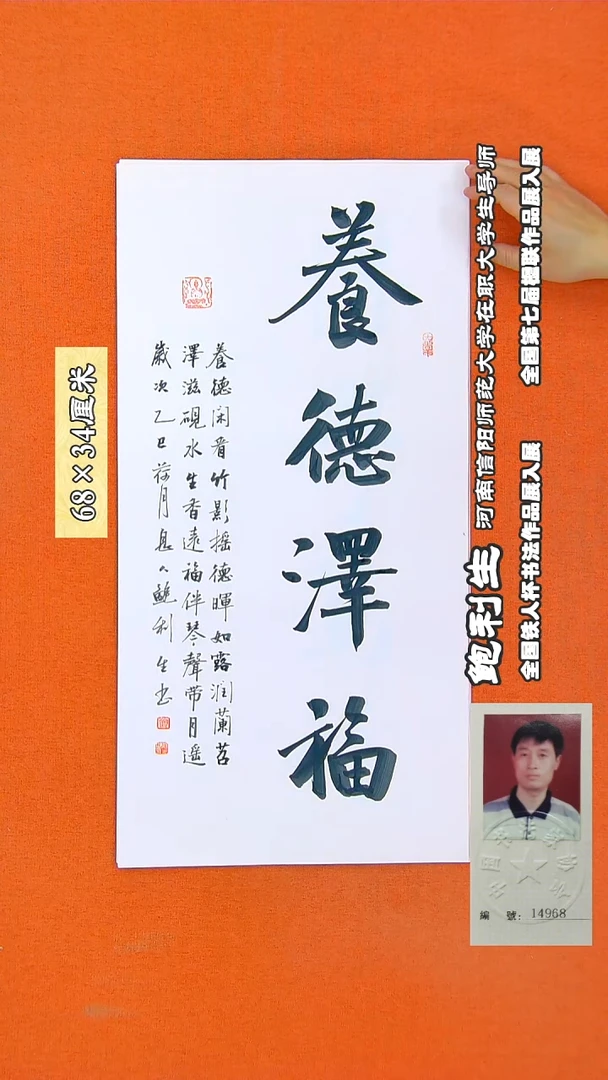 養德澤福
養德閑看竹影摇德暉如露润蘭苕
澤滋硯水生香遠福伴琴聲带月遥
歲次乙巳荷月 鮑利生书
68×34厘米
鲍利生 河南信阳师范大学在职大学生导师
全国铁人杯书法作品展入展 全国第七届楹联作品展入展
編 號: 14968